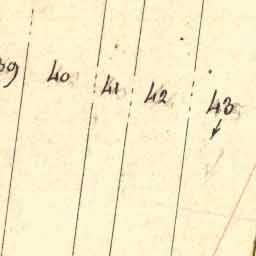 39 40 41 42 43